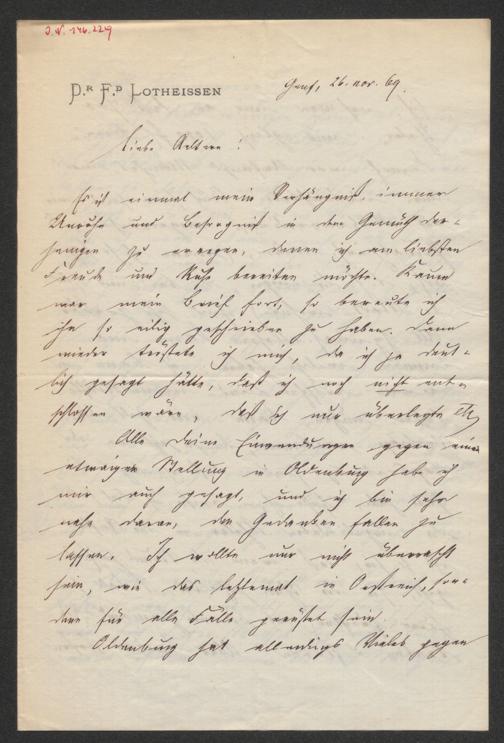 J.N. 146.229
Dr Fd Lotheissen
Genf, 26. nov. 69.
Liebe Aeltern!
Es ist einmal mein Verhängniß, immer
Unruhe und Besorgniß in den Gemüth der-
jenigen zu erregen, denen ich am liebsten
Freude und Ruhe bereiten möchte. Kaum
war mein Brief fort, so bereute ich
ihn so eilig geschrieben zu haben. Dann
wieder tröstete ich mich, da ich ja deut-
lich gesagt hätte, daß ich noch nicht ent-
schlossen wäre, daß ich nur überlegte
Alle Deine Einwendungen gegen eine
etwaige Stellung in Oldenburg habe ich
mir auch gesagt, und ich bin sehr
nahe daran, den Gedanken fallen zu
lassen. Ich wollte nur nicht überrascht
sein, wie das letztemal in Oestreich, son-
dern für alle Fälle gerüstet sein
Oldenburg hat allerdings Vieles gegen